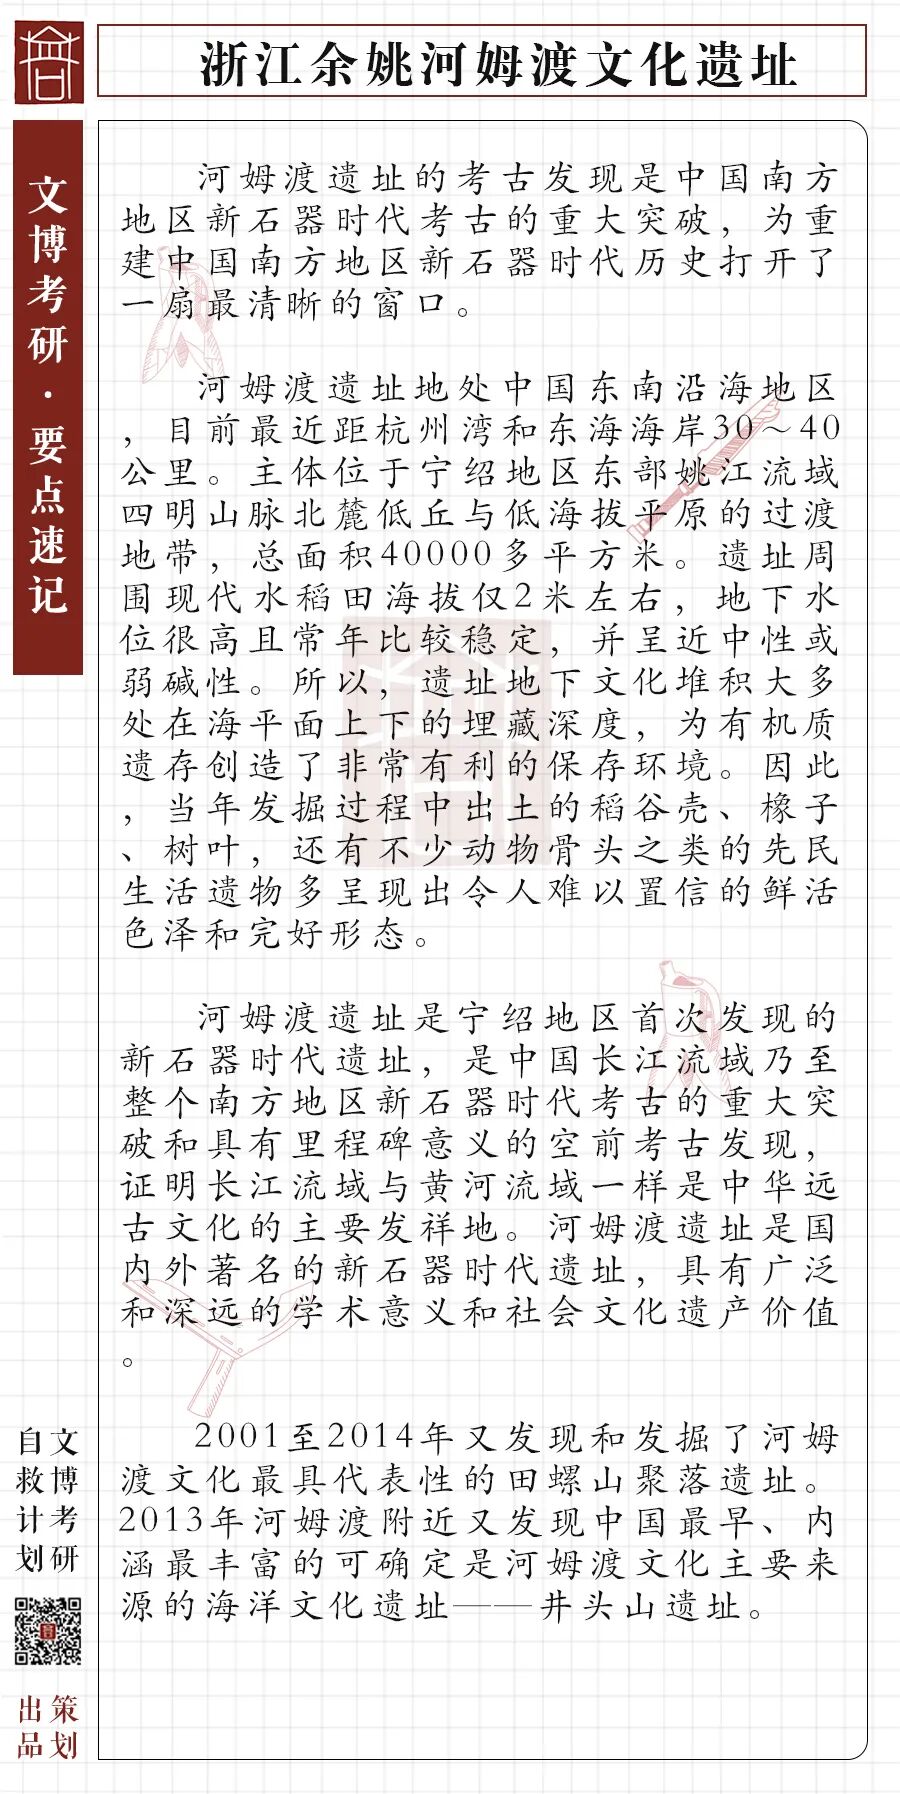 浙江余姚河姆渡文化遗址
文博考研·要点速记
河姆渡遗址的考古发现是中国南方
地区新石器时代考古的重大突破，为重
建中国南方地区新石器时代历史打开了
一扇最清晰的窗口。
河姆渡遗址地处中国东南沿海地区
，目前最近距杭州湾和东海海岸30～40
公里。主体位于宁绍地区东部姚江流域
四明山脉北麓低丘与低海拔平原的过渡
地带，总面积40000多平方米。遗址周
围现代水稻田海拔仅2米左右，地下水
位很高且常年比较稳定，并呈近中性或
弱碱性。所以，遗址地下文化堆积大多
处在海平面上下的埋藏深度，为有机质
遗存创造了非常有利的保存环境。因此
，当年发掘过程中出土的稻谷壳、橡子
、树叶，还有不少动物骨头之类的先民
生活遗物多呈现出令人难以置信的鲜活
色泽和完好形态。
河姆渡遗址是宁绍地区首次发现的
新石器时代遗址，是中国长江流域乃至
整个南方地区新石器时代考古的重大突
破和具有里程碑意义的空前考古发现，
证明长江流域与黄河流域一样是中华远
古文化的主要发祥地。河姆渡遗址是国
内外著名的新石器时代遗址，具有广泛
和深远的学术意义和社会文化遗产价值
。
2001至2014年又发现和发掘了河姆
渡文化最具代表性的田螺山聚落遗址。
2013年河姆渡附近又发现中国最早、内
涵最丰富的可确定是河姆渡文化主要来
源的海洋文化遗址——井头山遗址。
文博考研
自救计划
策划
出品